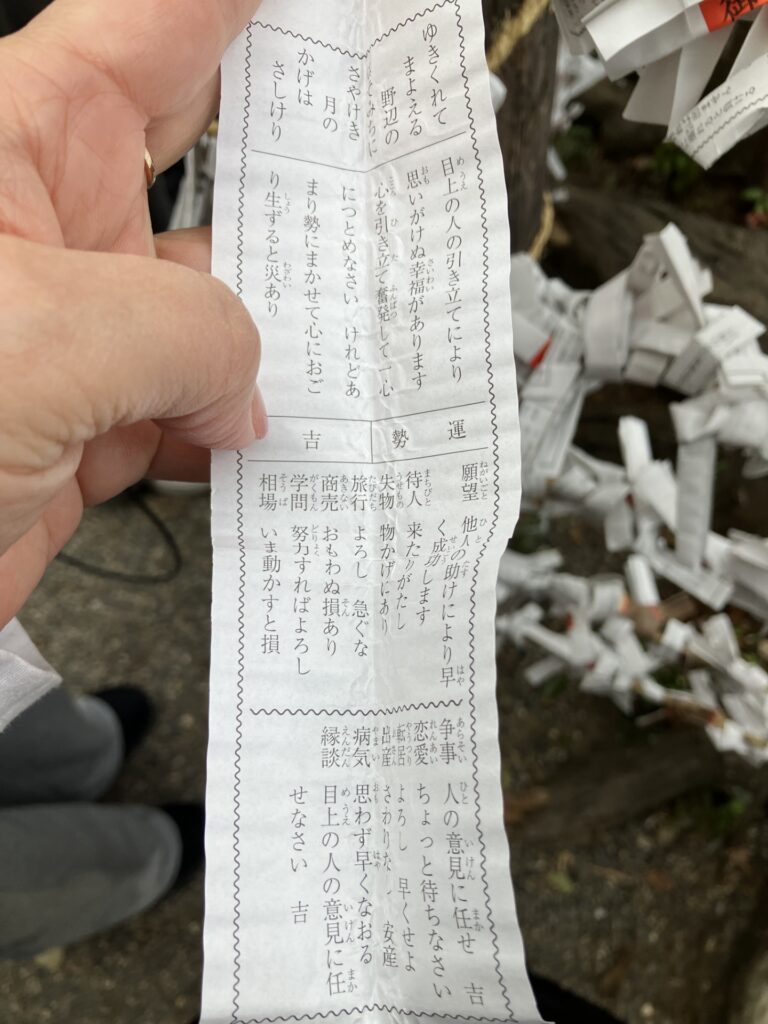 ゆきくれて
まよえる
野辺の
みちに
さやけき
月の
かげは
さしけり
目上の人の引き立てにより
思いがけぬ幸福があります
心を引き立て奮発して一心
につとめなさい けれどあ
まり勢にまかせて心におご
り生ずると災あり
運勢 吉
願望 他人の助けにより早
く成功します
待人 来たりがたし
失物 物かげにあり
旅行 よろし 急ぐな
商売 おもわぬ損あり
学問 努力すればよろし
相場 いま動かすと損
争事 人の意見に任せ 吉
恋愛 ちょっと待ちなさい
転居 よろし 早くせよ
出産 さわりなし 安産
病気 思わず早くなおる
縁談 目上の人の意見に任
せなさい 吉